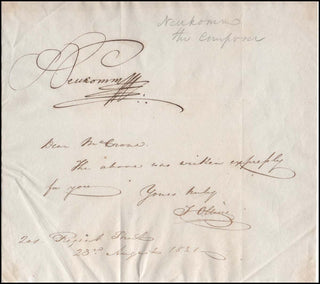 Neukomm
the Composer
Neukomm
Dear Mr Crane.
The above was written expressly
for you
Yours truly
Regent Street
23rd August 1831